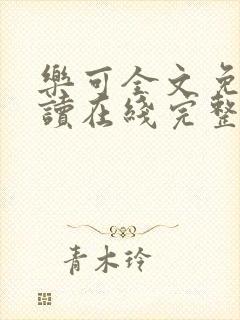 樂可全文免
讀在綫完整
青木玲